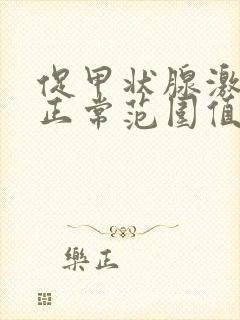 促甲状腺激
正常范围值
樂正